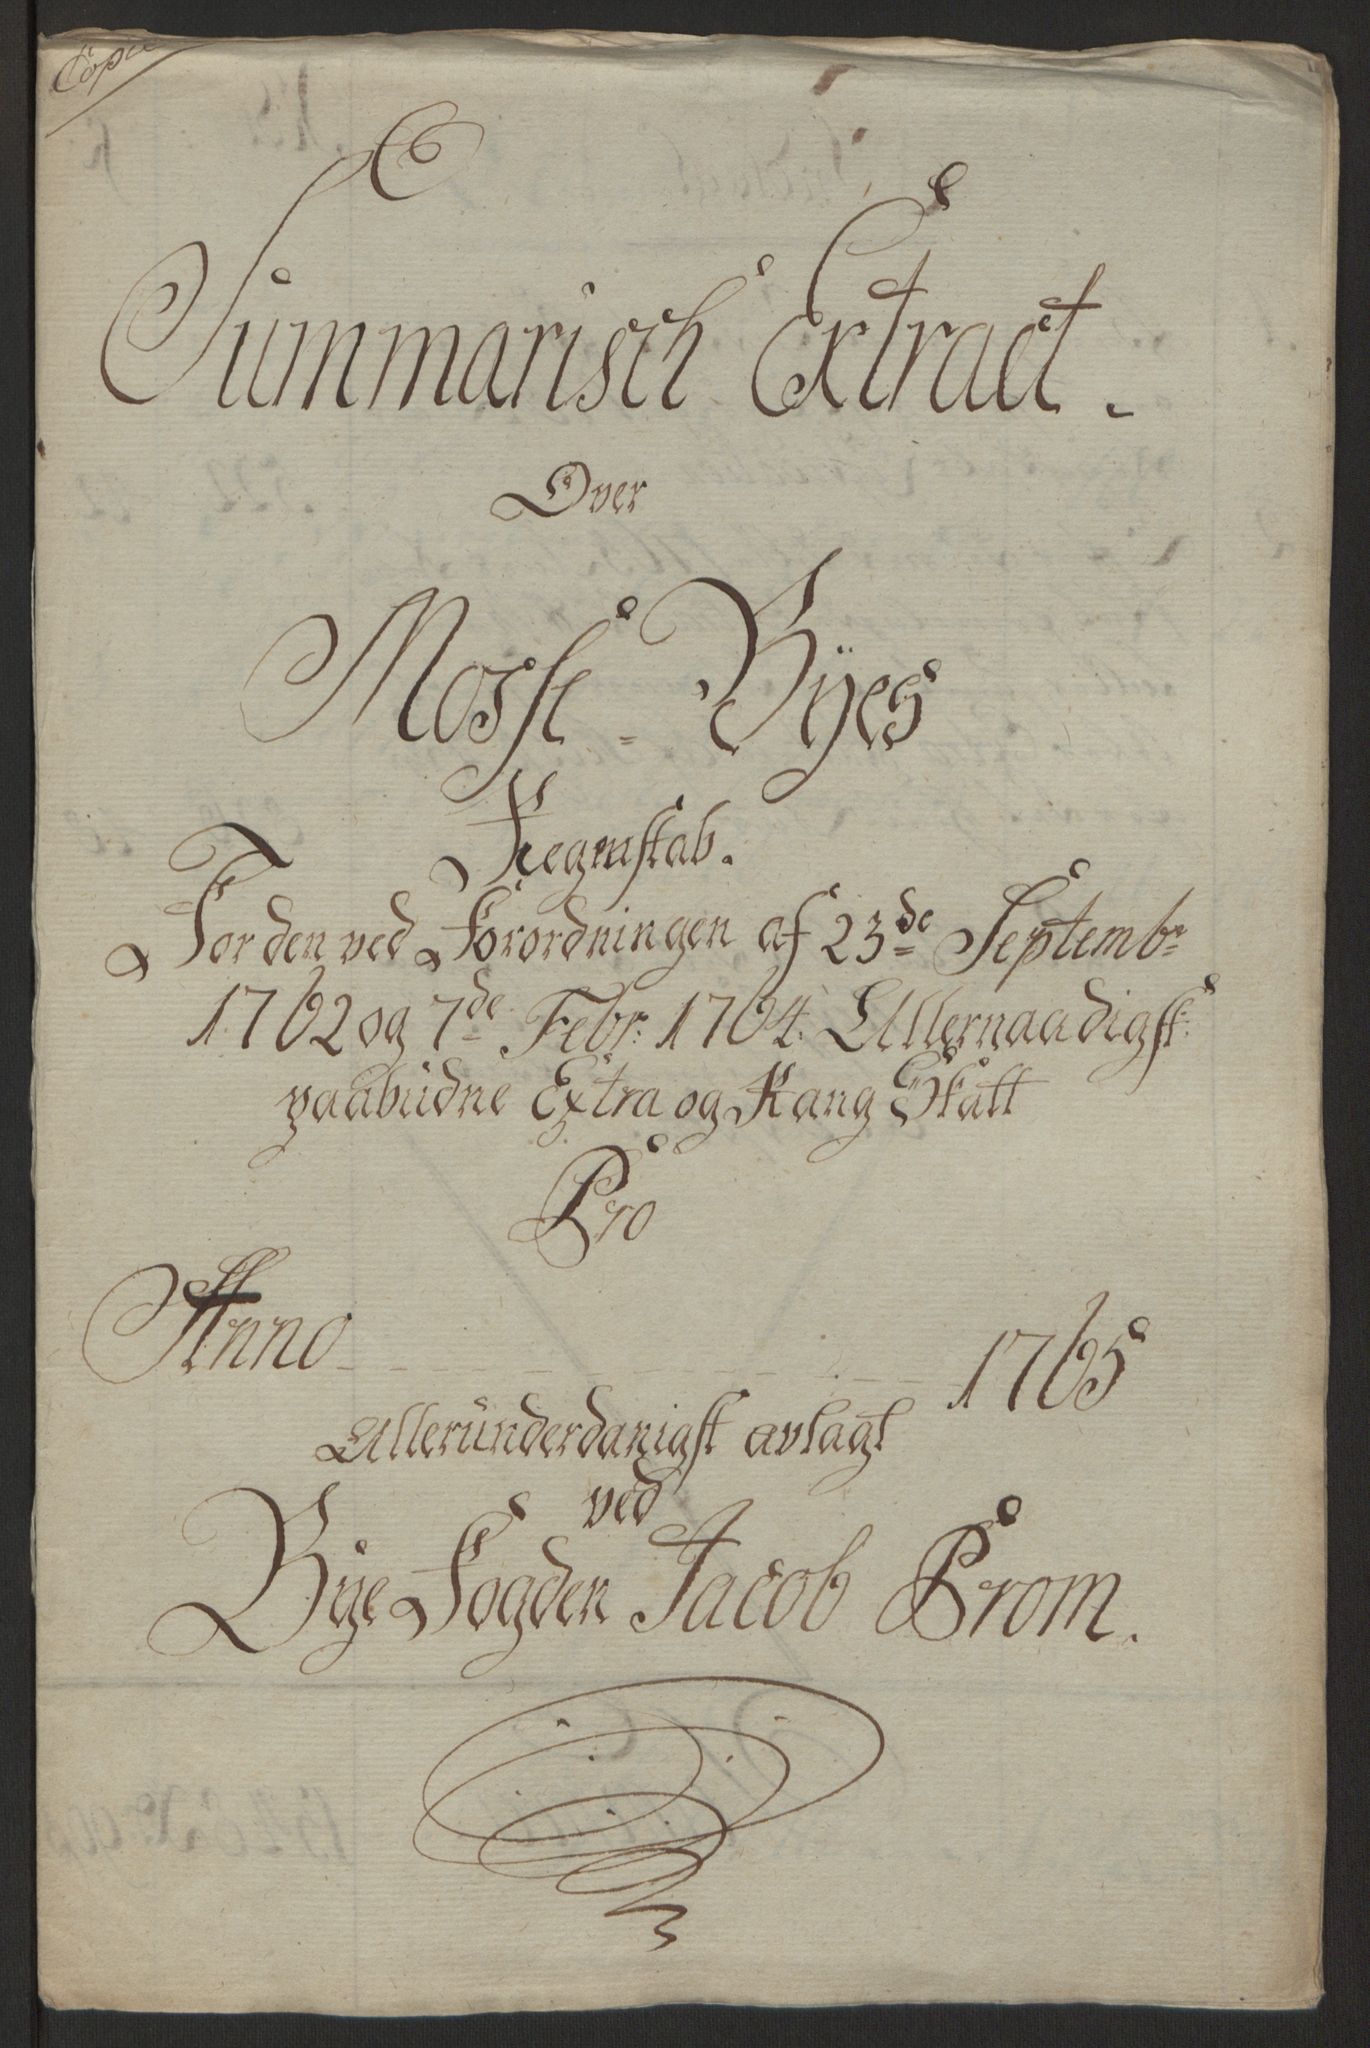 Copie
Summarisch Extract.
Over
Mosse - Byes
Regnstab.
For den ved Forordningen af 23de Septembr
1762 og 7de Febr: 1764. Allernaadigst
paabüdne Extra og Rang Skatt
Pro
Anno 1765
Alleründerdanigst avlagt
ved
Bye Fogden Jacob Prom.